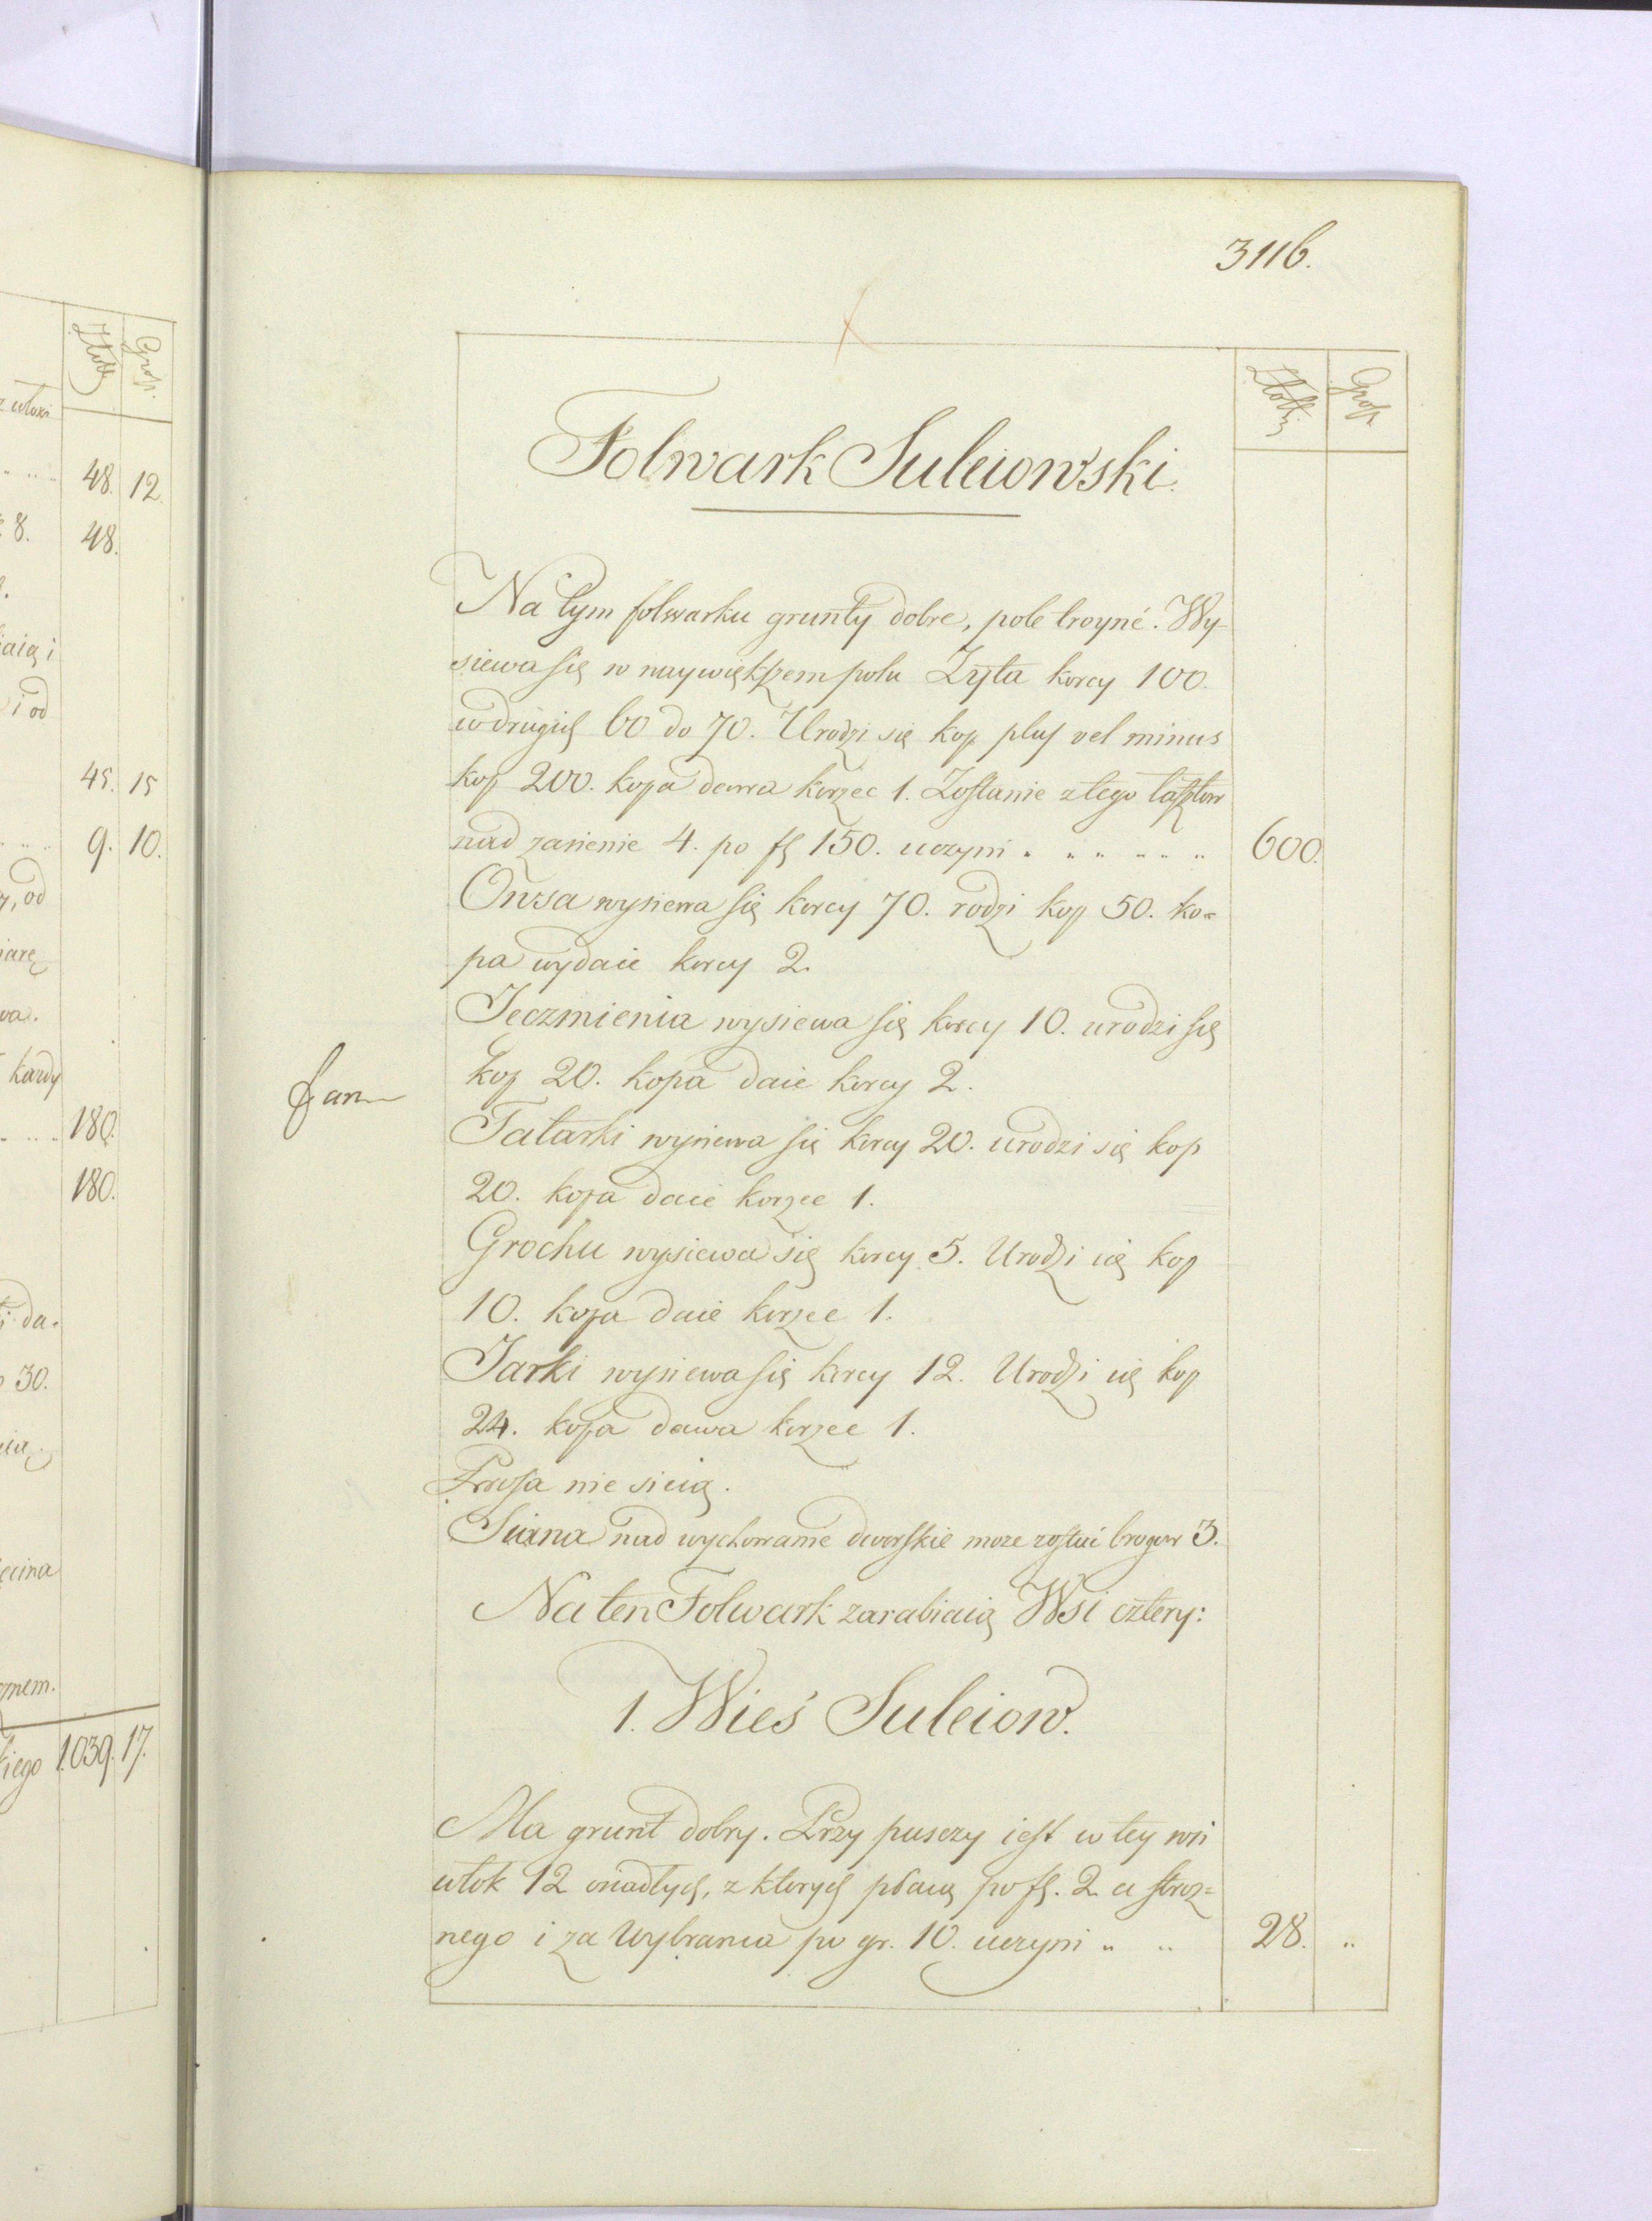 3116.
Złotki Grosz
Folwark Suleiowski.
Na tym folwarku grunty dobre, pole troyné. Wy-
siewa się w naywiększem polu Zyta korcy 100.
w drugich 60 do 70. Urodzi się kop plus vel minus
kop 200. kopa dawa korzec 1. Zostanie z tego łasztow
nad zasienie 4. po fl 150. uczyni " " " " " " 600.
Owsa wysiewa się korcy 70. rodzi kop 50. ko=
pa wydaie korcy 2.
Jeczmienia wysiewa się korcy 10. urodzi się
kop 20. kopa daie korcy 2.
Tatarki wysiewa się korcy 20. urodzi się kop
20. kopa daie korzec 1.
Grochu wysiewa się korcy 5. Urodzi się kop
10. kopa daie korzec 1.
Jarki wysiewa się korcy 12. Urodzi się kop
24. kopa dawa korzec 1.
Prosa nie sieią.
Siana nad wychowanie dworskie moze zostać brogow 3.
Na ten Folwark zarabiaią Wsi cztery:
1. Wieś Suleiow.
Ma grunt dobry. Przy puszczy iest w tey wsi
włok 12 osiadłych, z ktorych płacą po fl. 2. a stroz=
nego i za Wybrania po gr. 10. uczyni " " 28. "
48. 12.
8. 48.
i od
45. 15
9. 10.
180.
180.
30.
1.039. 17.